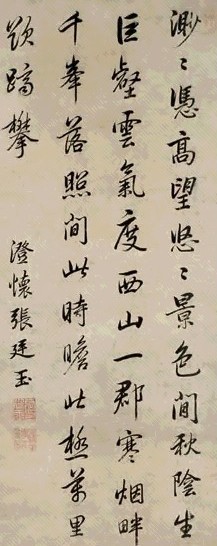 渺〻憑高望悠〻景色閒秋陰生
巨壑雲氣度西山一郡寒烟畔
千峯落照間此時瞻此極萬里
躋攀
澄懷張廷玉